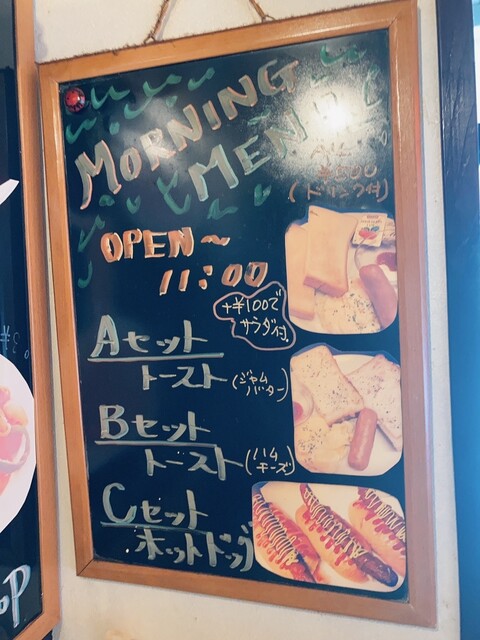 MORNING
MENU
¥500
(ドリンク付)
OPEN~
11:00
+¥100で
サラダ付
Aセット
トースト(ジャム
バター)
Bセット
トースト(ハム
チーズ)
Cセット
ホットドッグ